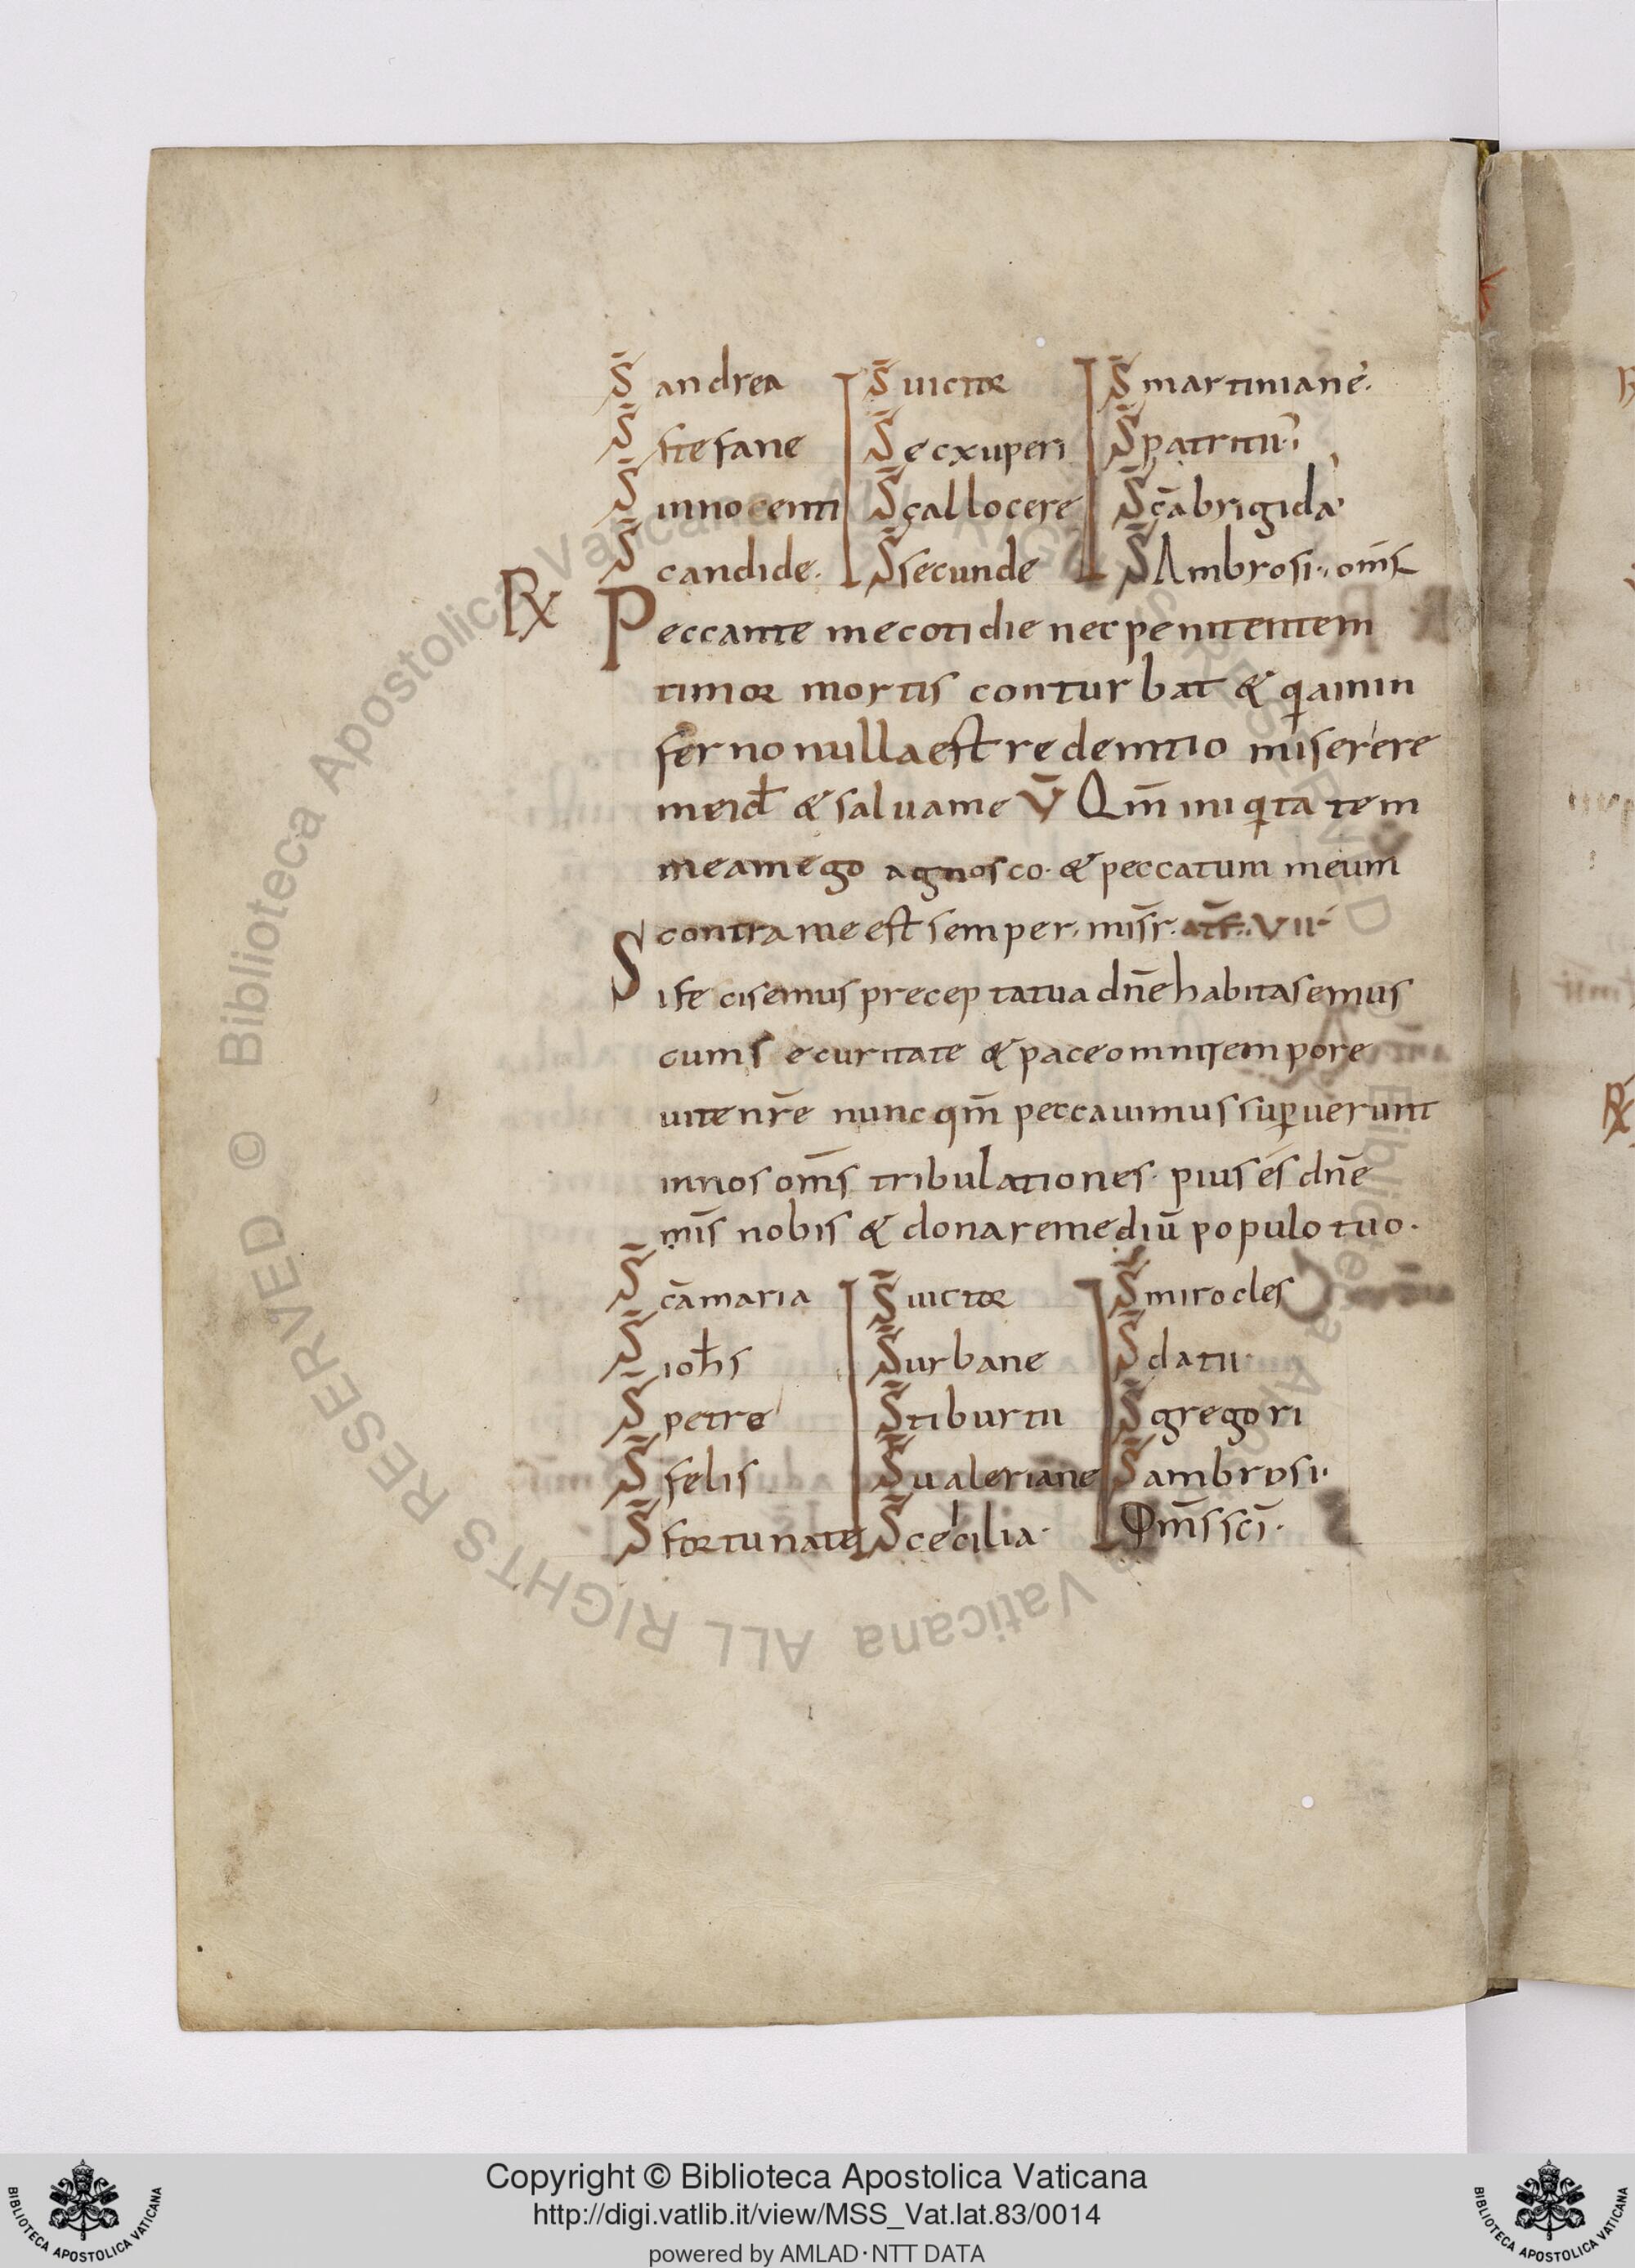 S̄ andrea S̄ uictor S̄ martiniane.
S̄ stefane S̄ ecxuperi S̄ patritii
S̄ innocenti S̄ callocere S̄ scā brigida
S̄ candide. S̄ secunde S̄ Ambrosi. om̄s
R Peccante me cotidie nec penitentem
timor mortis conturbat & q̄a in in
ferno nulla est redemtio miserere
mei d̄ & salua me V̄ Qm̄ iniqitatem
meam ego agnosco. & peccatum meum
contra me est semper. mis̄r. VII
Si fecisemus precepta tua dn̄e habitasemus
cum securitate & pace omni tempore
uite nr̄e nunc qm̄ peccauimus superuerunt
in nos om̄s tribulationes. pius es dn̄e
mis̄ nobis & dona remediū populo tuo.
S̄ cā maria S̄ uictor S̄ mirocles
S̄ ioh̄s S̄ urbane S̄ datii
S̄ petre S̄ tiburtii S̄ gregori
S̄ felis S̄ ualeriane S̄ ambrosi.
S̄ fortunate S̄ cecilia. Om̄s scī.
© Biblioteca Apostolica Vaticana ALL RIGHTS RESERVED
© Biblioteca Apostolica Vaticana ALL RIGHTS RESERVED
Copyright © Biblioteca Apostolica Vaticana
http://digi.vatlib.it/view/MSS_Vat.lat.83/0014
powered by AMLAD·NTT DATA
BIBLIOTECA APOSTOLICA VATICANA
BIBLIOTECA APOSTOLICA VATICANA